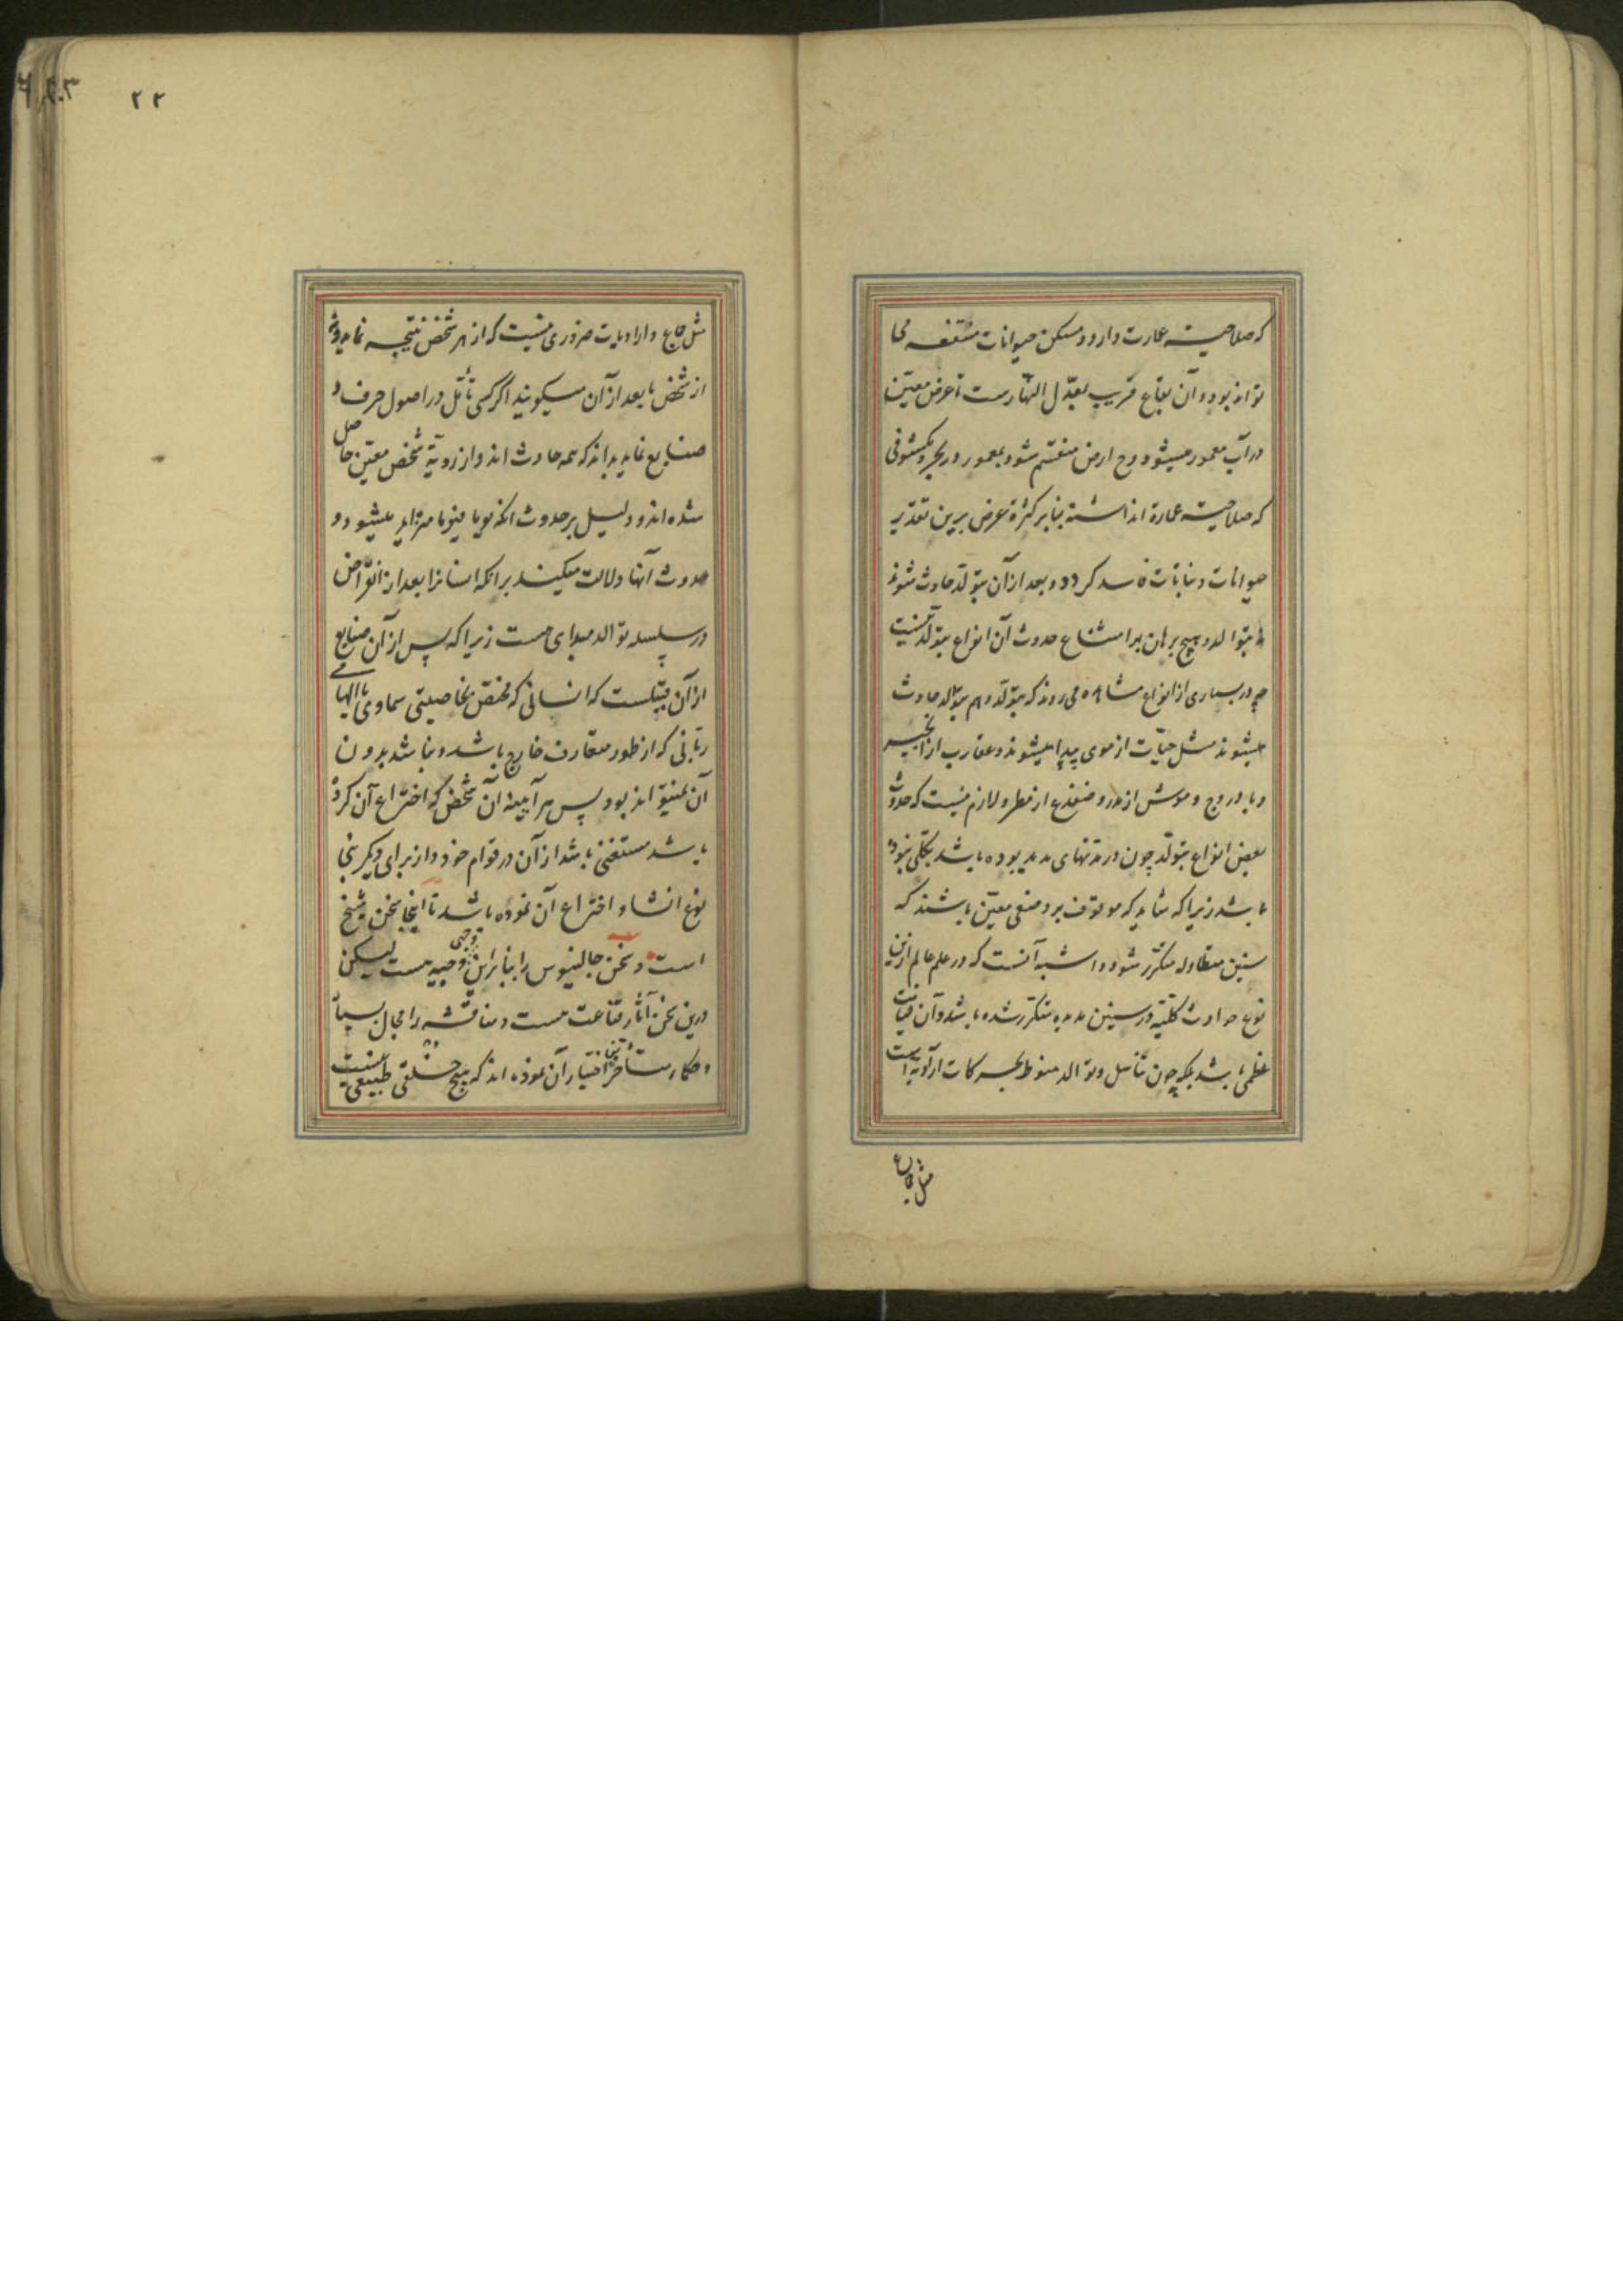 که صلاحیت عمارت دارد و مسکن حیوانات متنفسه می
تواند بود و آن بقاع قریب بمعدّل النهارست تا عرض معین
در آب مغمور میشود و ارض منقسم شود بمغمور در بحر و بمکشوفی
که صلاحیت عمارة نداشته بنا بر کثرة عرض برین تقدیر
حیوانات و نباتات فاسد کردد و بعد از آن بتولّد حادث شوند
نه بتوالد و هیچ برهان بر امتناع حدوث آن انواع بتولّد نیست
چه در بسیاری از انواع مشاهده می رود که بتولّد و هم بتوالد حادث
میشوند مثل حیّات از موی پیدا میشوند و عقارب از انجیر
و بادروج و موش از مدر و ضفدع از مطر و لازم نیست که حدوث
بعض انواع بتولّد چون در مدتهای مدید بوده باشد بکلی نبوده
باشد زیرا که شاید که موقوف بر وضعی معیّن باشند که
سنین متطاوله متکرّر شود و اشبه آنست که در علم عالم ازین
نوع حوادث کلّیّه در سنین مدیده متکرّر شده باشد و آن قیامت
عظمی باشد بلکه چون تناسل و توالد منوط بحرکات ارادیه است
مثل جماع
۲۲
مثل جماع و ارادیات ضروری نیست که از هر شخص نتیجه نماید و
از شخص تا بعد از آن میکوید اگر کسی تأمّل در اصول حرف و
صنایع نماید بداند که همه حادث اند و از رویّة شخص معیّن حاصل
شده اند و دلیل بر حدوث آنکه یوما فیوما متزاید میشود و
حدوث آنها دلالت میکند بر آنکه انسانرا بعد از انقراض
در سلسله توالد مبدای هست زیرا که پس از آن صنایع
از آن قبیلست که انسانی که مختص بخاصیتی سماوی یا الهامی
ربّانی که از طور متعارف خارج باشد و نباشد بدون
آن نمیتواند بود پس هر آینه آن شخص که اختراع آن کرده
باشد مستغنی باشد از آن در قوام خود و از برای دیکر بنی
نوع انشا و اختراع آن نموده باشد تا اینجا سخن شیخ
است و سخن جالینوس را بنا برین وجهی وجیه هست لیکن
درین سخن آثار قناعت هست و مناقشه را مجال بسیار
و حکماء متأخر اختیار آن نموده اند که هیچ خلقی طبیعی نیست